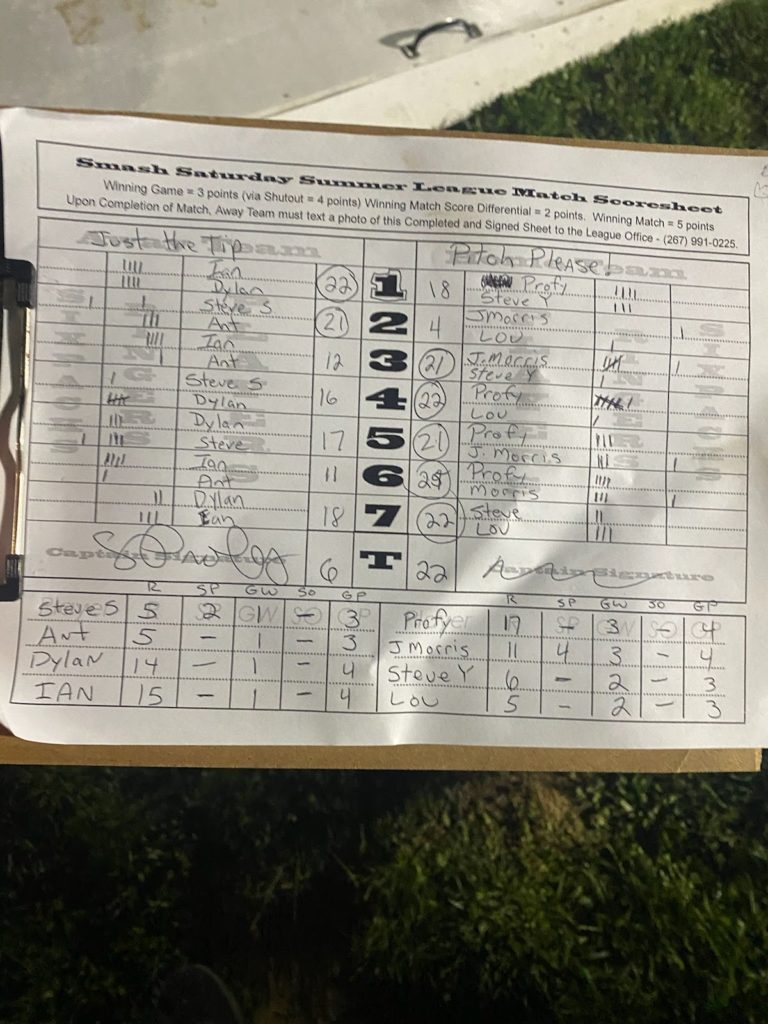 Smash Saturday Summer League Match Scoresheet
Winning Game = 3 points (via Shutout = 4 points) Winning Match Score Differential = 2 points. Winning Match = 5 points
Upon Completion of Match, Away Team must text a photo of this Completed and Signed Sheet to the League Office - (267) 991-0225.
Just the Tip Pitch Please!
Ian 22 1 18 Profy
Dylan Steve Y
Steve S 21 2 4 J morris
Ant Lou
Ian 12 3 21 J. Morris
Ant Steve Y
Steve S 16 4 22 Profy
Dylan Lou
Dylan 17 5 21 Profy
Steve J. Morris
Ian 11 6 Profy
Ant morris
Dylan 18 7 22 Steve
Ian Lou
Captain Signature 6 T 22 Captain Signature
R SP GW SO GP R SP GW SO GP
Steve S 5 2 GW SO 3 Profy 17 - 3 - 4
Ant 5 - 1 - 3 J Morris 11 4 3 - 4
Dylan 14 - 1 - 4 Steve Y 6 - 2 - 3
IAN 15 - 1 - 4 Lou 5 - 2 - 3